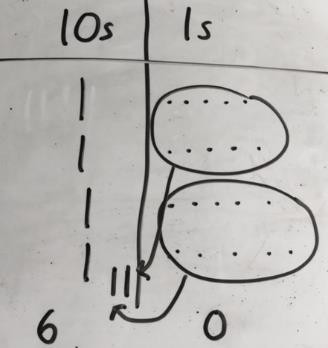 10s 1s
6 0